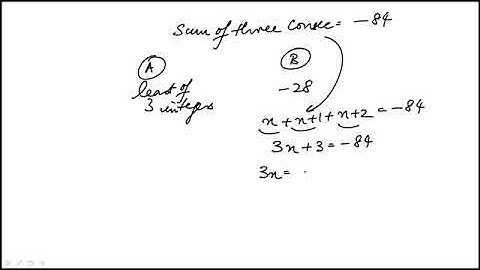 Sum of three consec = -84
A
B
least of
3 integs
-28
n + n+1 + n+2 = -84
3n + 3 = -84
3n =